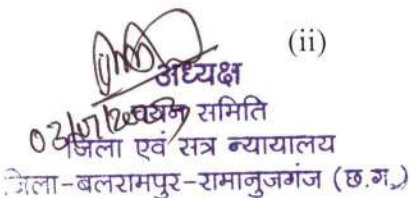 (ii)
अध्यक्ष
चयन समिति
जिला एवं सत्र न्यायालय
जिला-बलरामपुर-रामानुजगंज (छ.ग.)